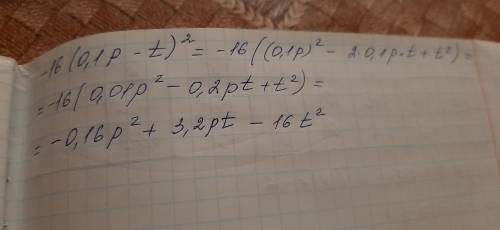 -16(0,1p - t)² = -16((0,1p)² - 2·0,1p·t + t²) =
= -16(0,01p² - 0,2pt + t²) =
= -0,16p² + 3,2pt - 16t²